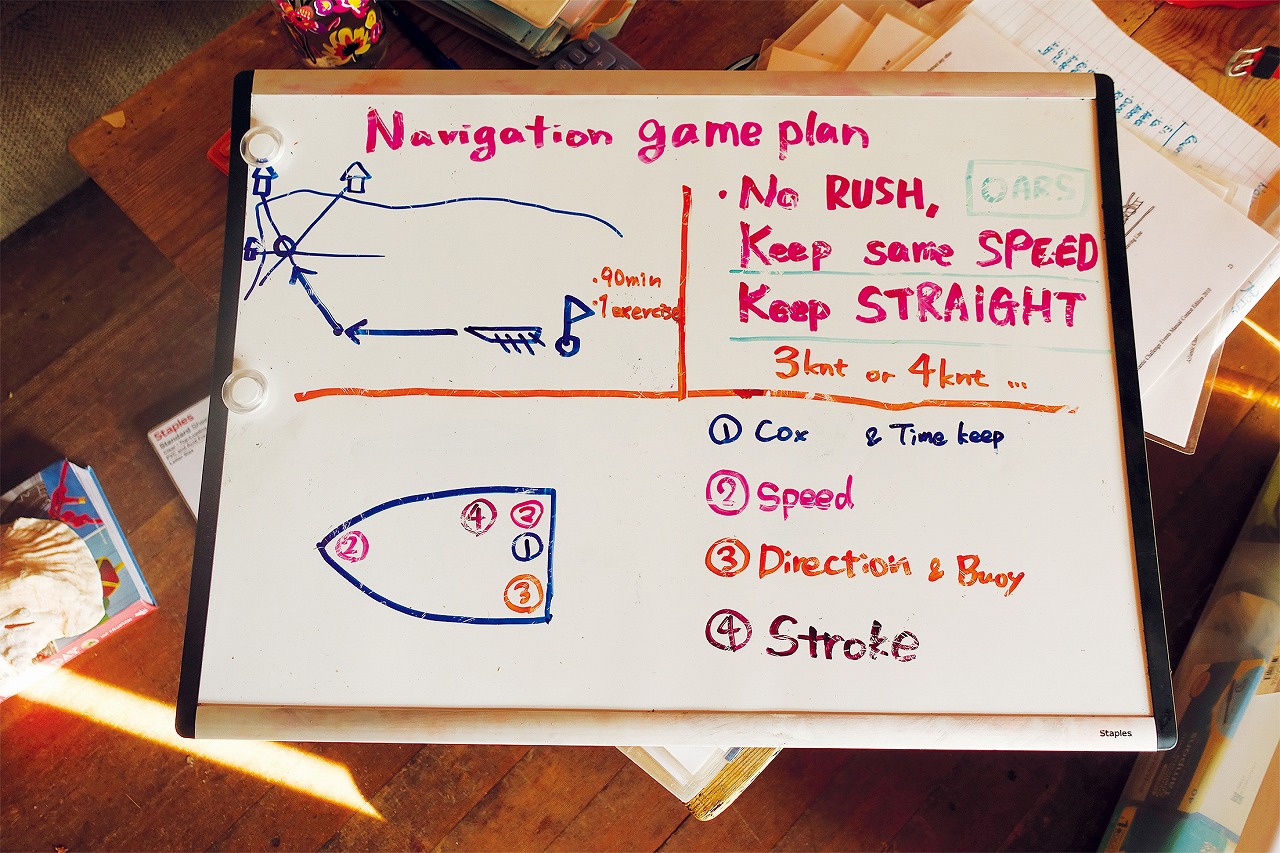 Navigation game plan
• No RUSH,
OARS
Keep same SPEED
Keep STRAIGHT
3knt or 4knt ...
•90min
•1 exercise
① Cox & Time keep
② Speed
③ Direction & Buoy
④ Stroke
④ ②
② ①
③
Staples
Staples
Standard